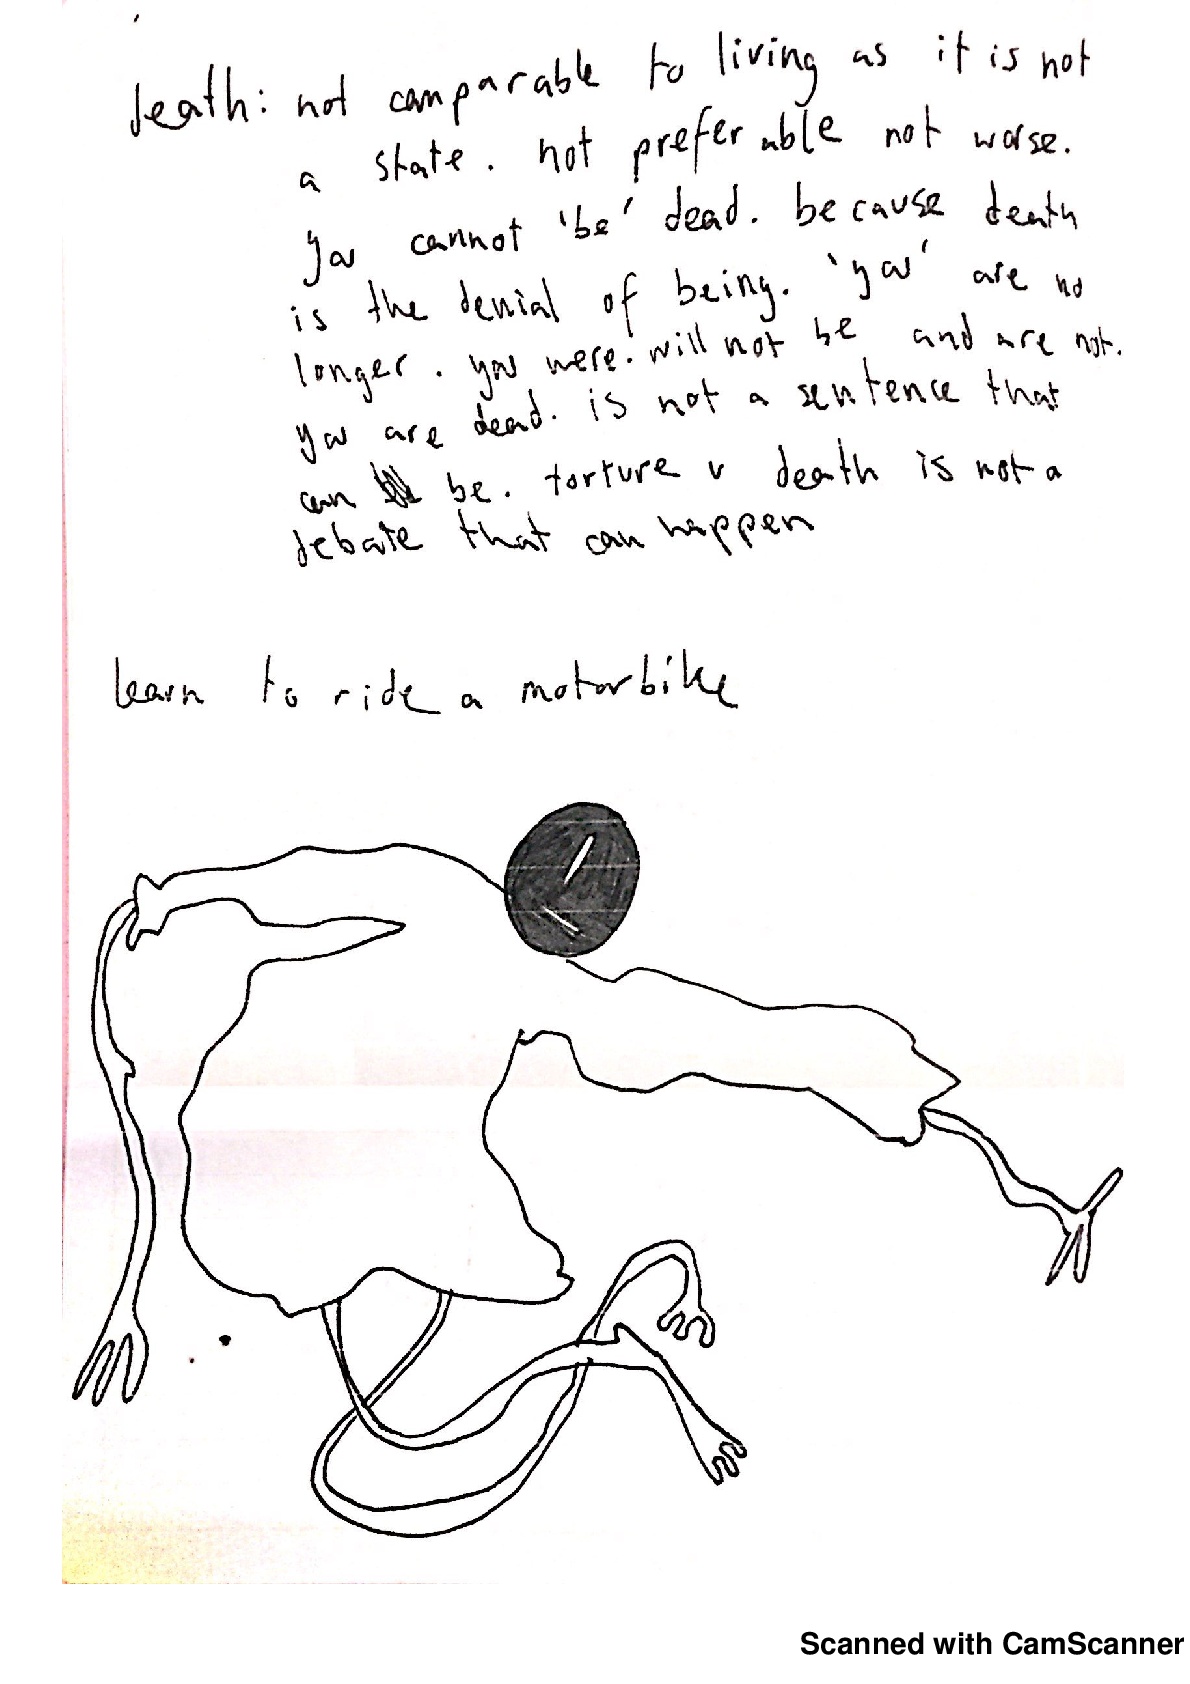 death: not comparable to living as it is not
a state. not preferable not worse.
you cannot 'be' dead. because death
is the denial of being. 'you' are no
longer. you were. will not be and are not.
you are dead. is not a sentence that
can be. torture v death is not a
debate that can happen
learn to ride a motorbike
Scanned with CamScanner